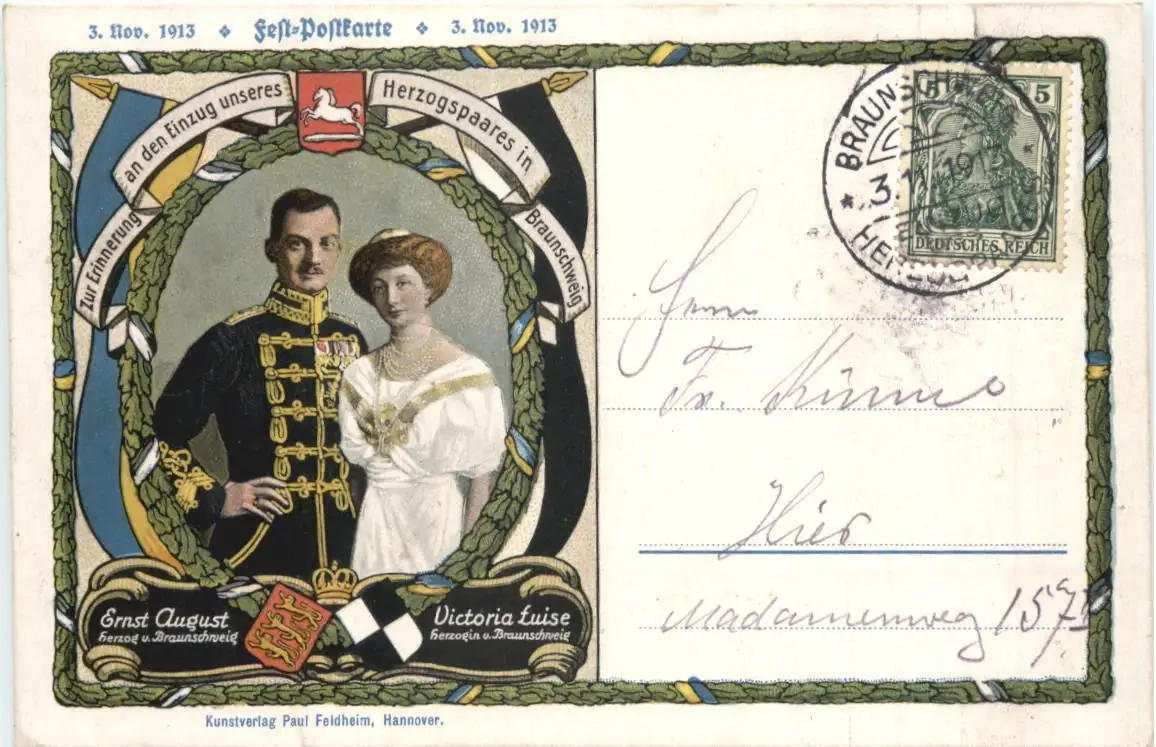 3. Nov. 1913 ❖ Fest-Postkarte ❖ 3. Nov. 1913
Zur Erinnerung an den Einzug unseres Herzogspaares in Braunschweig
BRAUNSCHW
3.11.1913
HERZOG
5 5
DEUTSCHES REICH
Herrn
Fr.
Hier
Madamenweg 157
Ernst August
Herzog v. Braunschweig
Victoria Luise
Herzogin v. Braunschweig
Kunstverlag Paul Feldheim, Hannover.